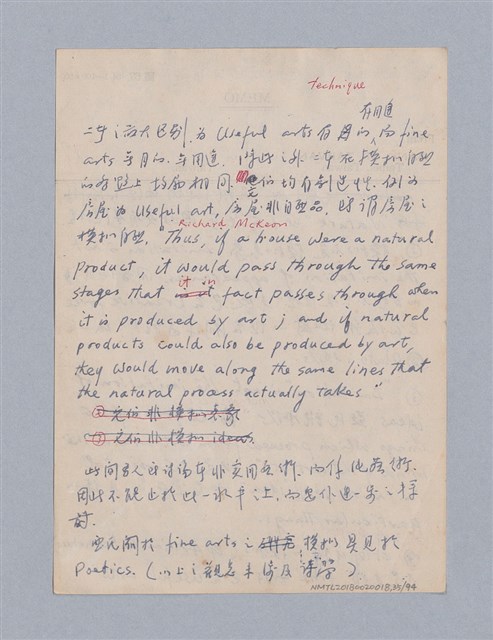 technique
有用途
二者之最大區別, 為 Useful arts 有目的, 而 fine
arts 無目的. 無用途. 除此之外, 二者在模擬自然
的原則上均為相同. 均有創造性. 例如
房屋為 Useful art, 房屋非自然品, 所謂房屋之
Richard McKeon
模擬自然, Thus, if a house were a natural
product, it would pass through the same
stages that it in fact passes through when
it is produced by art; and if natural
products could also be produced by art,
they would move along the same lines that
the natural process actually takes"
① 它們非模擬表象
② 它們非模擬 ideas.
此間吾人討論者非實用藝術, 而係純藝術.
因此不能止於此一水平上, 而應作進一步之探
討.
亞氏關於 fine arts 之模擬具見於
Poetics. (以上之觀念未涉及詩學).
NMTL20180020018.35/94